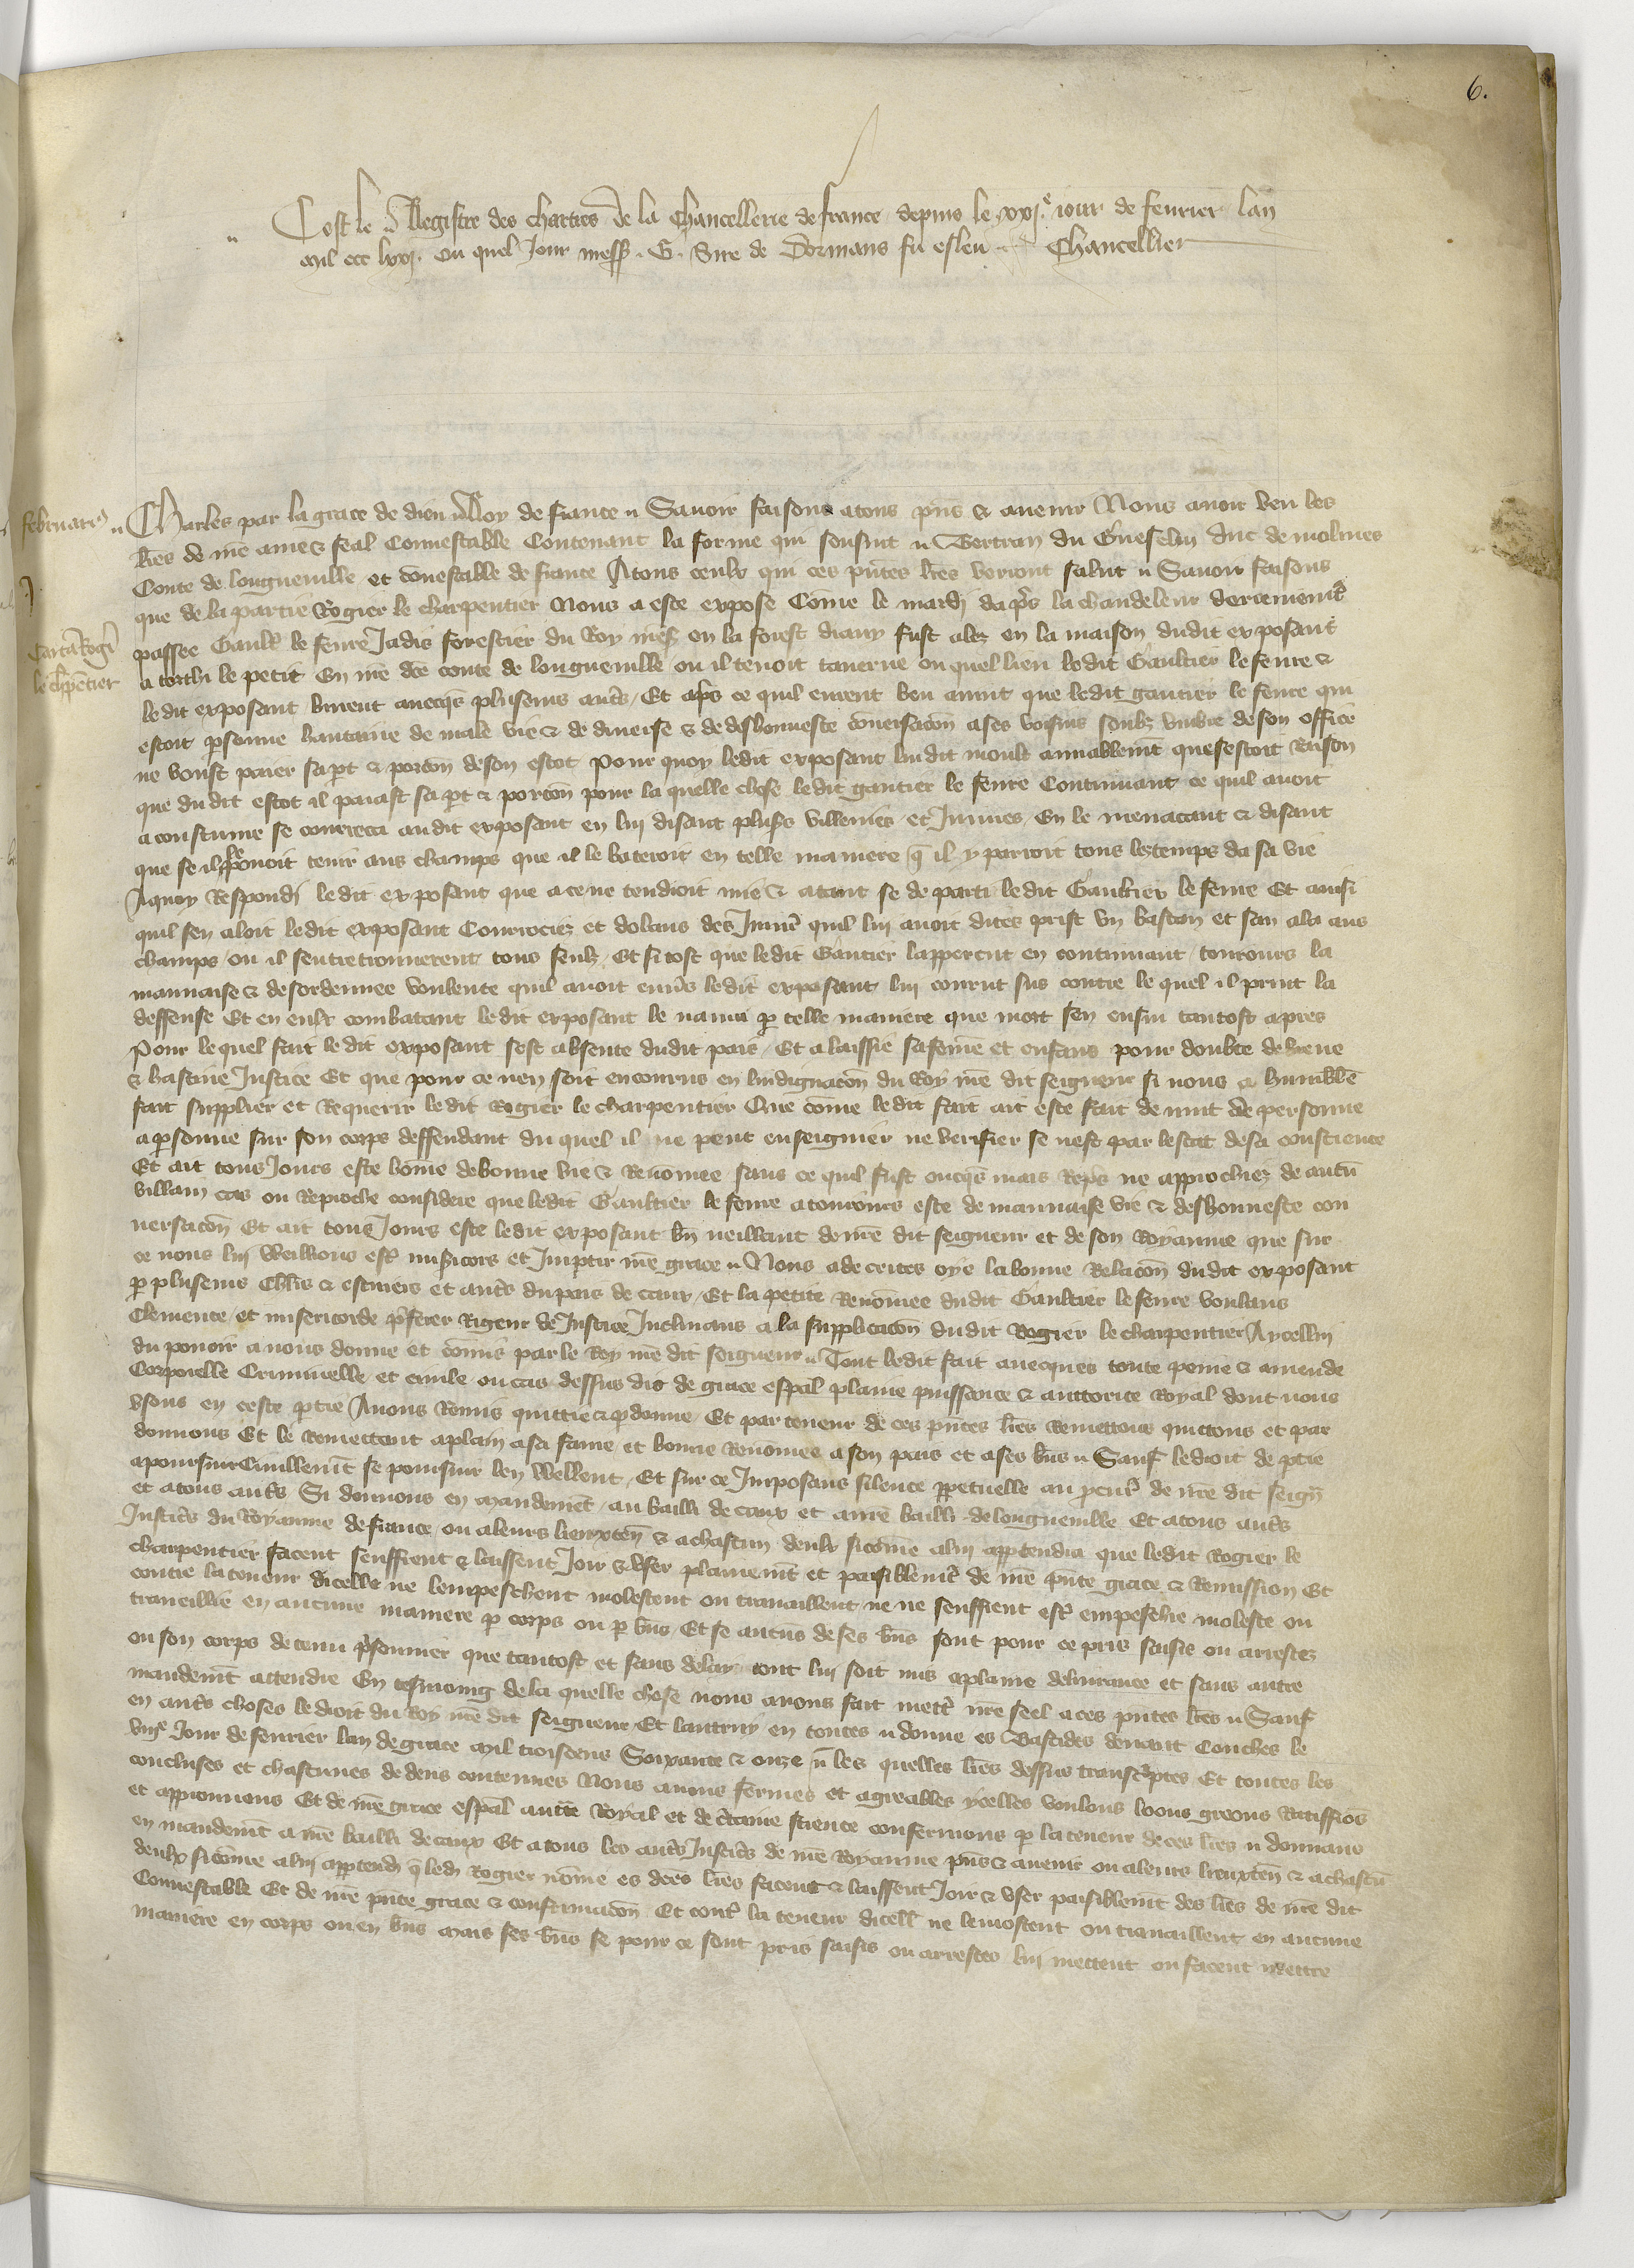 6.
Cest le Registre des chartres de la Chancellerie de france depuis le xxj.e iour de feurier lan
mil ccc lxxj. ou quel Jour mess. G. Sire de Dormans fu esleu Chancellier
februarij
Charles par la grace de dieu Roy de france Sauoir faisons a tous pns & auenir Nous auoir veu les
lres de nre ame & feal Connestable Contenant la forme qui sensuit Bertran du Guesclin duc de molines
Conte de longueuille et conestable de france A tous ceulx qui ces pntes lres verront salut Sauoir faisons
que de la partie Rogier le charpentier Nous a este expose Come le mardi daprs la chandeleur derrenemt
Carta Rogi
passee Gault le feure Jadis forestier du Roy mess en la forest diauy fust alez en la maison dudit exposant
le chpentier
a torchi le petit En nre dce conte de longueuille ou il tenoit tauerne ou quel lieu ledit Gaultier le feure &
ledit exposant burent auecqs pluseurs autrs Et aprs ce quil eurent beu auint que ledit gautier le feure qui
estoit psonne hautaine de male vie & de diuerse & de deshonneste conuersacon a ses voisins soubz vmbre de son office
ne voust paier sa pt & porcon de son escot Pour quoy ledit exposant lui dit moult amiablemt que cestoit Raison
que dudit escot il paiast sa pt & porcon pour la quelle chose ledit gautier le feure Continuant ce quil auoit
acoustume se courrecа audit exposant en lui disant plusrs villenies et Iniures En le menacant & disant
que se il le pouoit tenir aus champs que il le bateroit en telle maniere q il y parroit tous les temps da sa vie
A quoy Respondi ledit exposant que a ce ne tendroit mie & atant se departi ledit Gaultier le feure Et ainsi
quil sen aloit ledit exposant Courrociez et dolans des Iniures quil lui auoit dites prist vn baston et san ala aus
champs ou il sentretrouuerent tous seulz Et si tost que ledit Gautier lappercut en continuant tourours la
mauuaise & desordennee voulente quil auoit enurs ledit exposant lui courut sus contre le quel il print la
deffense Et en eulx combatant ledit exposant le naura p telle maniere que mort sen ensui tantost apres
Pour le quel fait ledit exposant sest absente dudit pais Et a laissie sa feme et enfans pour doubte de briene
& hastiue Justice Et que pour ce nen soit encourus en lindignacon du Roy nre dit seigneur si nous a humblemt
fait supplier et Requerir ledit Rogier le charpentier Que come ledit fait ait este fait de nuit de personne
a psonne sur son corps deffendant du quel il ne peut enseignier ne verifier se nest par lestat de sa conscience
Et ait tous Jours este home de bonne vie & Renomee sans ce quil fust oncqs mais Reprs ne approchiez de aucun
villain cas ou Reproche considere que ledit Gaultier le feure a tourours este de mauuaise vie & deshonneste con
uersacon Et ait tous Jours este ledit exposant bn veillant de nre dit seigneur et de son Royaume que sur
ce nous lui Weillions estre misicors et Impartir nre grace Nous adecertes oye la bonne Relacon dudit exposant
p pluseurs chlrs & escuiers et autrs du pais de caux Et la petite Renommee dudit Gaultier le feure voulans
Clemence et misericorde prferer Rigeur de Justice Inclinans a la supplicacon dudit Rogier le charpentier A ycellui
du pouoir a nous donne et comis par le Roy nre dit seigneur Tout ledit fait auecques toute peine & amende
Corporelle Criminelle et ciuile ou cas dessus dit de grace espal plaine puissance & auctorite Royal dont nous
vsons en ceste ptie Auons Remis quittie & pdonne Et par teneur de ces pntes lres Remettons quittons et par
donnons Et le Remettant a plain a sa fame et bonne Renommee a son pais et a ses bns Sauf le droit de ptie
a poursuir Ciuillemt se poursuir len Wellent Et sur ce Imposans silence ppetuelle au procur de nre dit seign
et a tous autrs Si donnons en mandement au bailli de caux et a nre bailli de longueuille Et a tous autrs
Justicrs du Royaume de france ou a leurs lieuxten & a chascun deulx sicome a lui appartendra que ledit Rogier le
charpentier facent seuffrent & laissent Joir & vser plainemt et paisiblemt de nre pnte grace & Remission Et
contre la teneur dicelle ne lempeschent molestent ou trauaillent ne ne seuffrent estr empeschie moleste ou
traueillie en aucune maniere p corps ou p bns Et se aucuns de ses bns sont pour ce pris saisis ou arrestez
ou son corps detenu prisonnier que tantost et sans delay tout lui soit mis a plaine deliurance et sans autre
mandemt attendre En tesmoing de la quelle chose nous auons fait mettr nre seel a ces pntes lres Sauf
en autrs choses le droit du Roy nre dit seigneur Et lautruy en toutes donne es Bastides deuant Conches le
viije Jour de feurier lan de grace mil troiscens Soixante & onze les quelles lres dessus transcriptes Et toutes les
concluses et chascunes dedens contenues Nous auans fermes et agreables ycelles voulons loons greons Ratiffions
et approuuons Et de nre grace espal aucte Royal et de certaine science confermons p la teneur de ces lres donnans
en mandemt a nre bailli de caux Et a tous les autrs Justicrs de nre Royaume pns & auenir ou a leurs lieuxten & a chascun
deulx sicome a lui appartendra q ledi Rogier nome es dces lres facent & laissent Joir & vser paisiblemt des lres de nre dit
Connestable Et de nre pnte grace & confirmacon Et contr la teneur dicell ne le molestent ou trauaillent en aucune
maniere en corps ou en bns mais ses bns se pour ce sont pris saisis ou arrestes lui mettent ou facent mettre